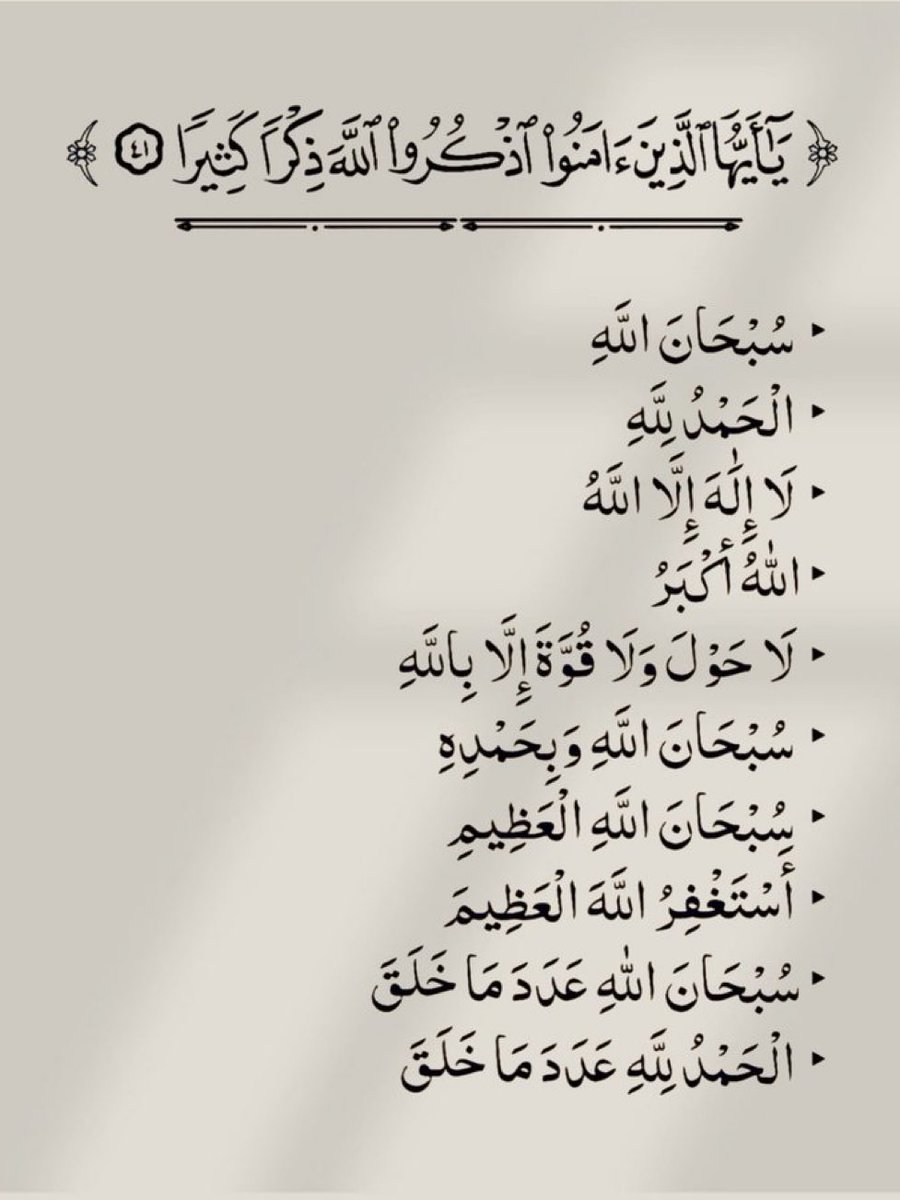 ﴿ يَٰٓأَيُّهَا ٱلَّذِينَ ءَامَنُوا۟ ٱذْكُرُوا۟ ٱللَّهَ ذِكْرًا كَثِيرًا ٤١ ﴾
سُبْحَانَ اللَّهِ
الْحَمْدُ لِلَّهِ
لَا إِلَٰهَ إِلَّا اللَّهُ
اللهُ أَكْبَرُ
لَا حَوْلَ وَلَا قُوَّةَ إِلَّا بِاللَّهِ
سُبْحَانَ اللَّهِ وَبِحَمْدِهِ
سُبْحَانَ اللَّهِ الْعَظِيمِ
أَسْتَغْفِرُ اللَّهَ الْعَظِيمَ
سُبْحَانَ اللهِ عَدَدَ مَا خَلَقَ
الْحَمْدُ لِلَّهِ عَدَدَ مَا خَلَقَ